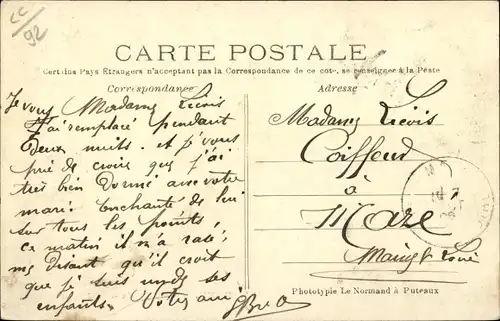 cc/92
CARTE POSTALE
Certains Pays Étrangers n'acceptant pas la Correspondance de ce côté, se renseigner à la Poste
Correspondance
Adresse
Je vous Madame Licois
J'ai remplacé pendant
deux nuits. et j'vous
prie de croire que j'ai
très bien Dormé avec votre
mari. Enchanté de lui
sur tous les points,
ce matin il m'a raté,
me disant qu'il croit
que j'suis unde ses
enfants. Votre ami
Madame Licois
Coiffeur
à
Mazé
Maine & Loire
Phototypie Le Normand à Puteaux